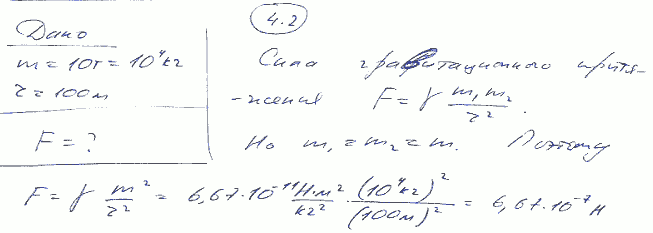 4.2
Дано
m = 10т = 10⁴ кг
r = 100 м
F = ?
Сила гравитационного притя-
-жения F = γ m₁m₂/r².
Но m₁ = m₂ = m. Поэтому
F = γ m²/r² = 6,67·10⁻¹¹ Н·м²/кг² · (10⁴кг)²/(100м)² = 6,67·10⁻⁷ Н